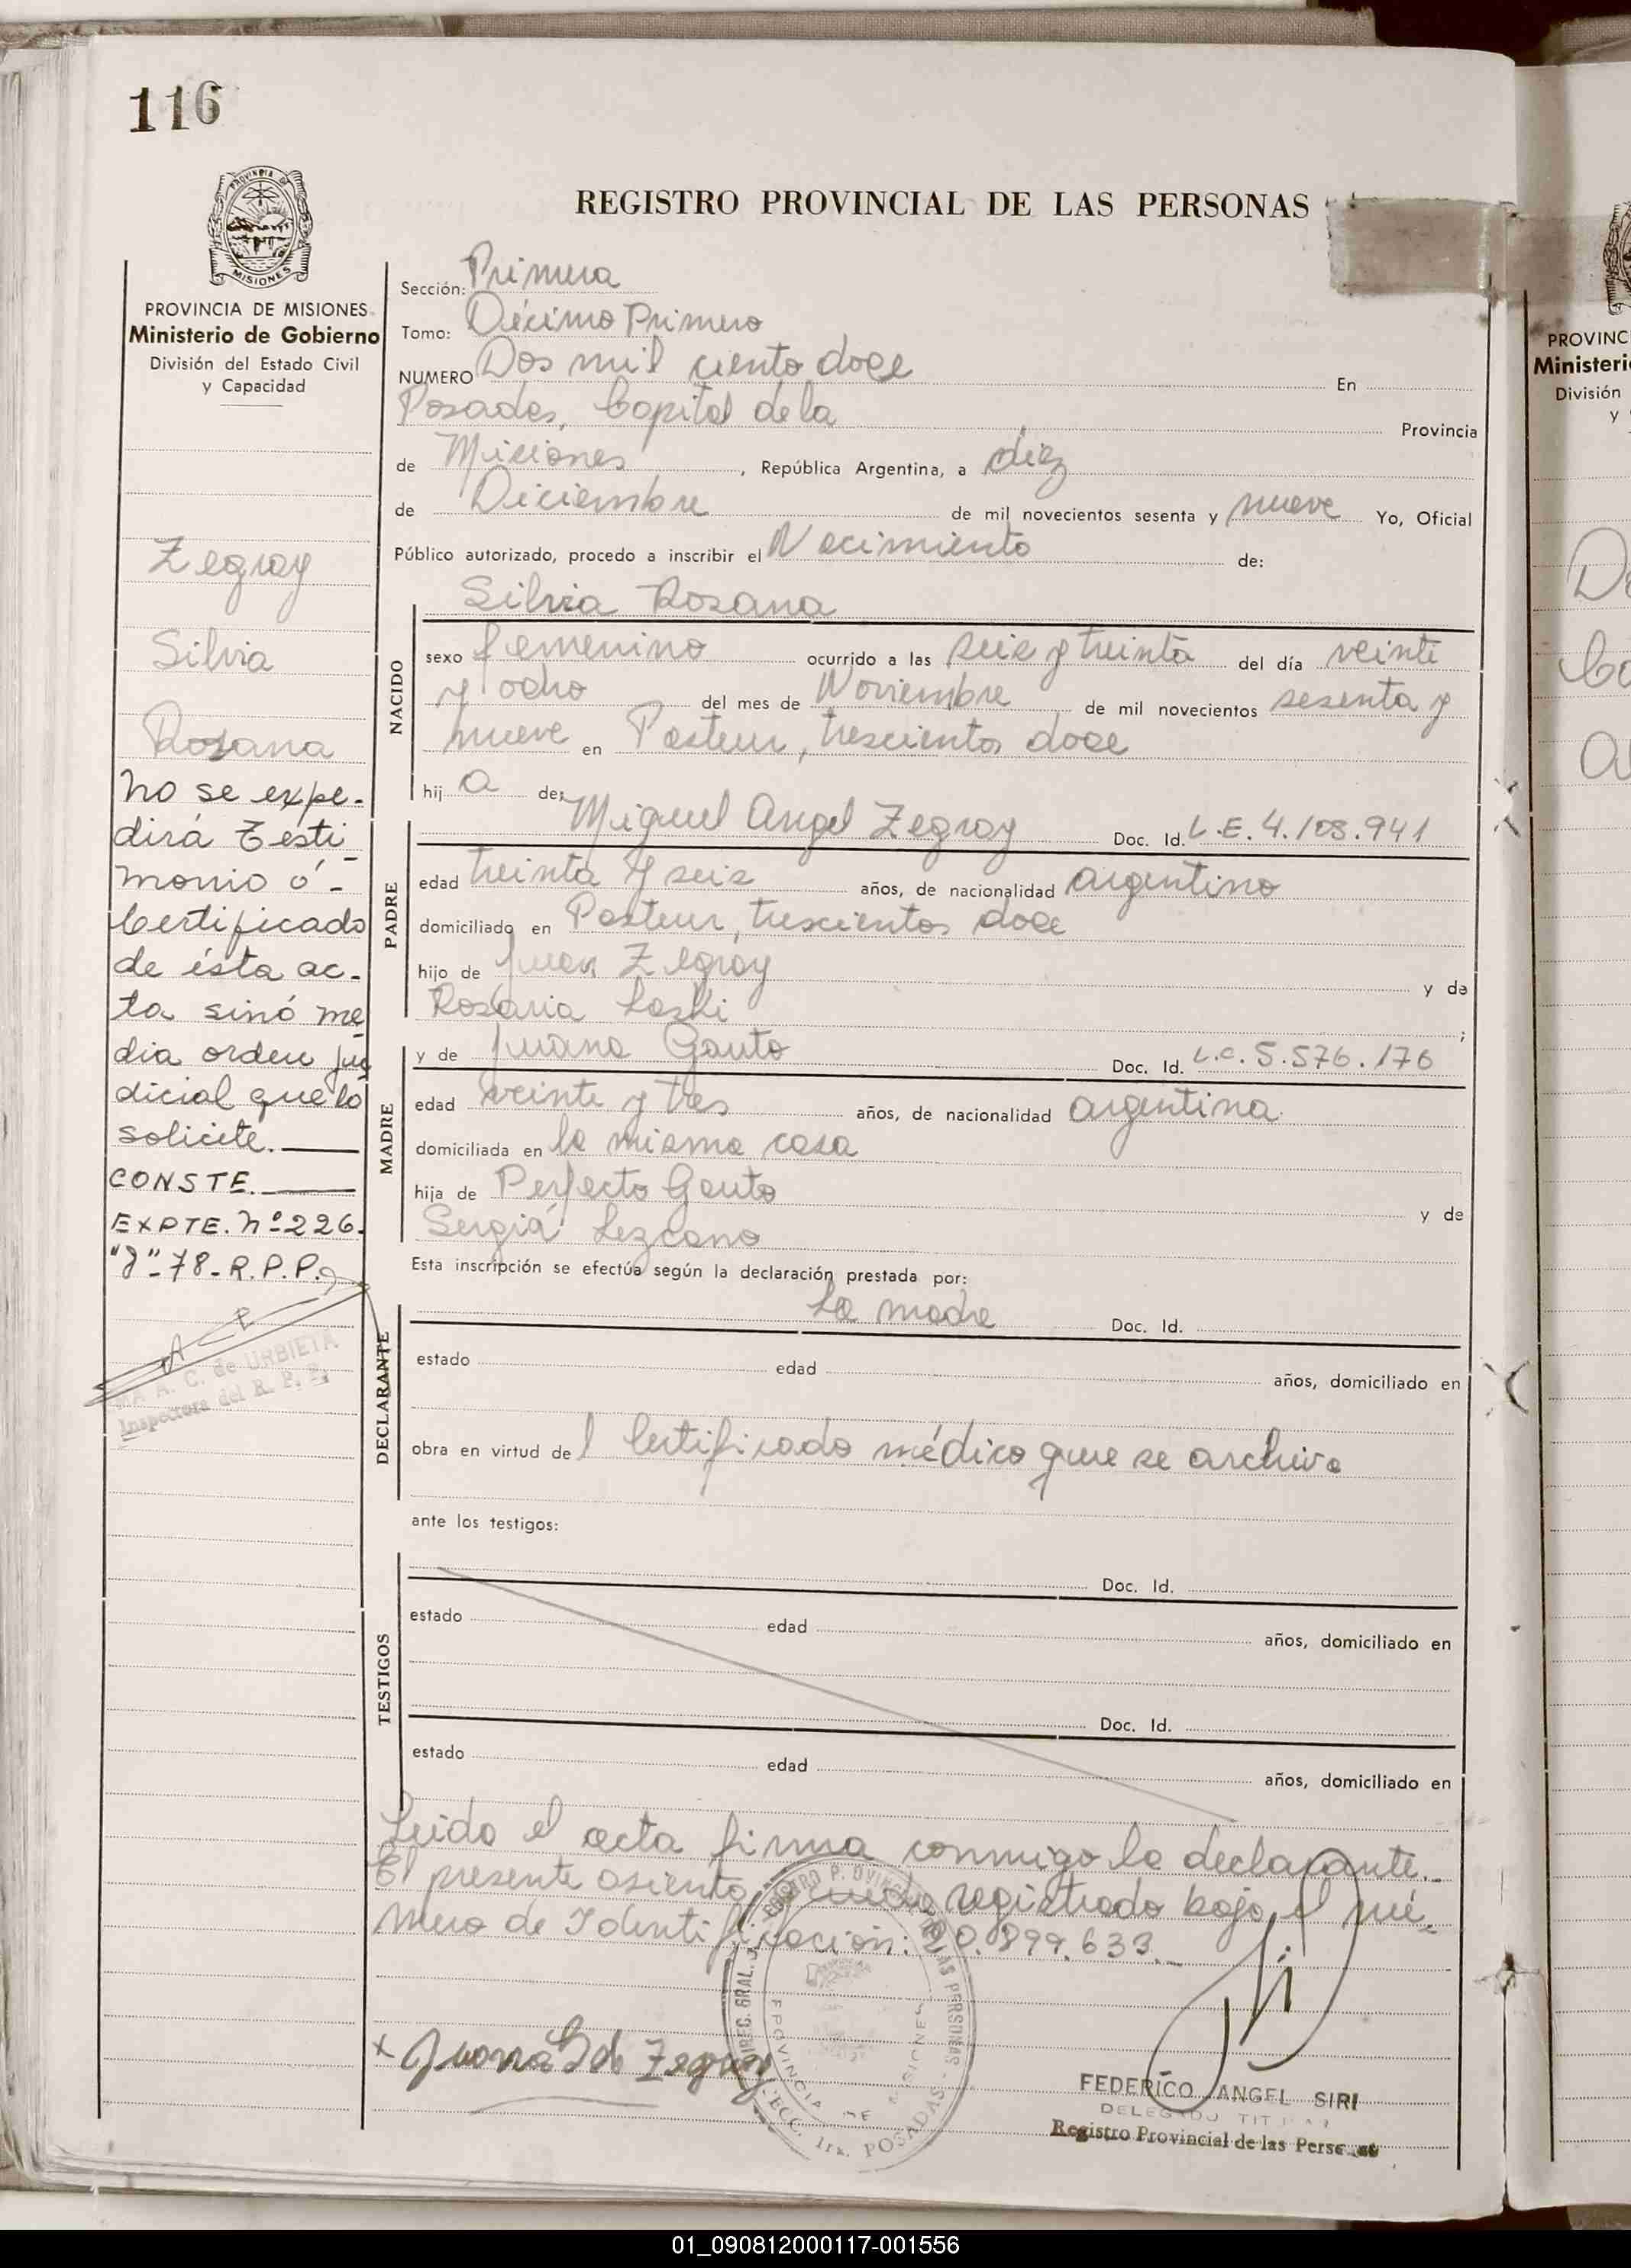 116
PROVINCIA DE
MISIONES
REGISTRO PROVINCIAL DE LAS PERSONAS
PROVINCIA DE MISIONES
Ministerio de Gobierno
División del Estado Civil
y Capacidad
Zegray
Silvia
Rosana
No se expe-
dirá Testi-
monio ó-
Certificado
de ésta ac-
ta sinó me
dia orden ju
dicial que lo
solicite.
CONSTE.
EXPTE. Nº 226.
78- R.P.P.
A. C. de URBIETA
Inspectora del R. P. P.
Sección: Primera
Tomo: Décimo Primero
NUMERO Dos mil ciento doce En
Posadas, Capital de la Provincia
de Misiones, República Argentina, a diez
de Diciembre de mil novecientos sesenta y nueve Yo, Oficial
Público autorizado, procedo a inscribir el Nacimiento de:
Silvia Rosana
NACIDO
sexo femenino ocurrido a las seis y treinta del día veinti
y ocho del mes de Noviembre de mil novecientos sesenta y
nueve en Pasteur, trescientos doce
hij a de:
Miguel Angel Zegray Doc. Id. L.E. 4.108.941
PADRE
edad treinta y seis años, de nacionalidad argentino
domiciliado en Pasteur, trescientos doce
hijo de Juan Zegray y de
Rosaria Loski ;
MADRE
y de Juana Gauto Doc. Id. L.C. 5.576.176
edad veinte y tres años, de nacionalidad argentina
domiciliada en la misma casa
hija de Perfecto Gauto y de
Sergia Lezcano
Esta inscripción se efectúa según la declaración prestada por:
DECLARANTE
La madre Doc. Id.
estado edad años, domiciliado en
obra en virtud del Certificado médico que se archiva
ante los testigos:
TESTIGOS
Doc. Id.
estado edad años, domiciliado en
Doc. Id.
estado edad años, domiciliado en
Leido el acta firma conmigo la declarante.
El presente asiento queda registrado bajo el nú-
mero de Identificación: 20.899.633.
x Juana G de Zegray
PROVINCIA DE MISIONES
SECC. 1ra. POSADAS
FEDERICO ANGEL SIRI
DELEGADO TITULAR
Registro Provincial de las Personas
PROVINC
Ministeri
División
y
01_090812000117-001556